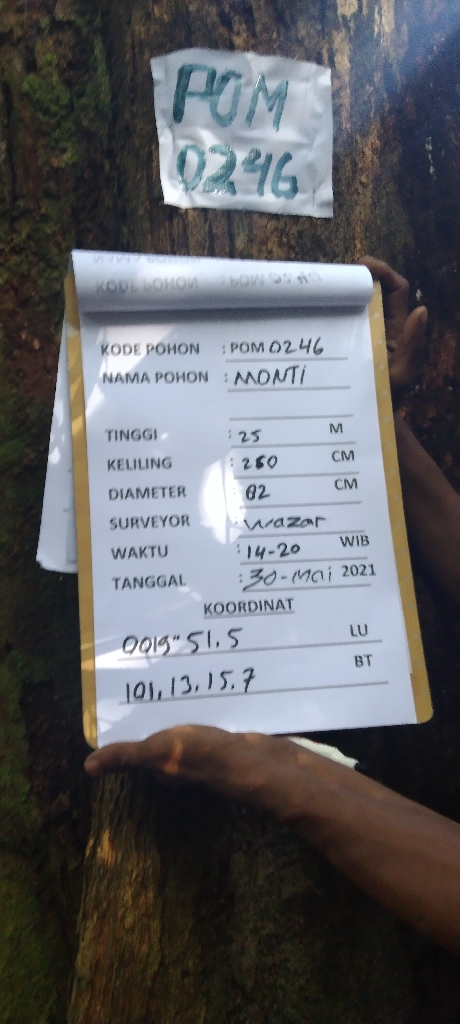 POM
0246
KODE POHON : POM 0246
NAMA POHON : MONTI
TINGGI : 25 M
KELILING : 260 CM
DIAMETER : 82 CM
SURVEYOR : Wazar
WAKTU : 14-20 WIB
TANGGAL : 30-Mai 2021
KOORDINAT
0019" 51.5 LU
101.13.15.7 BT